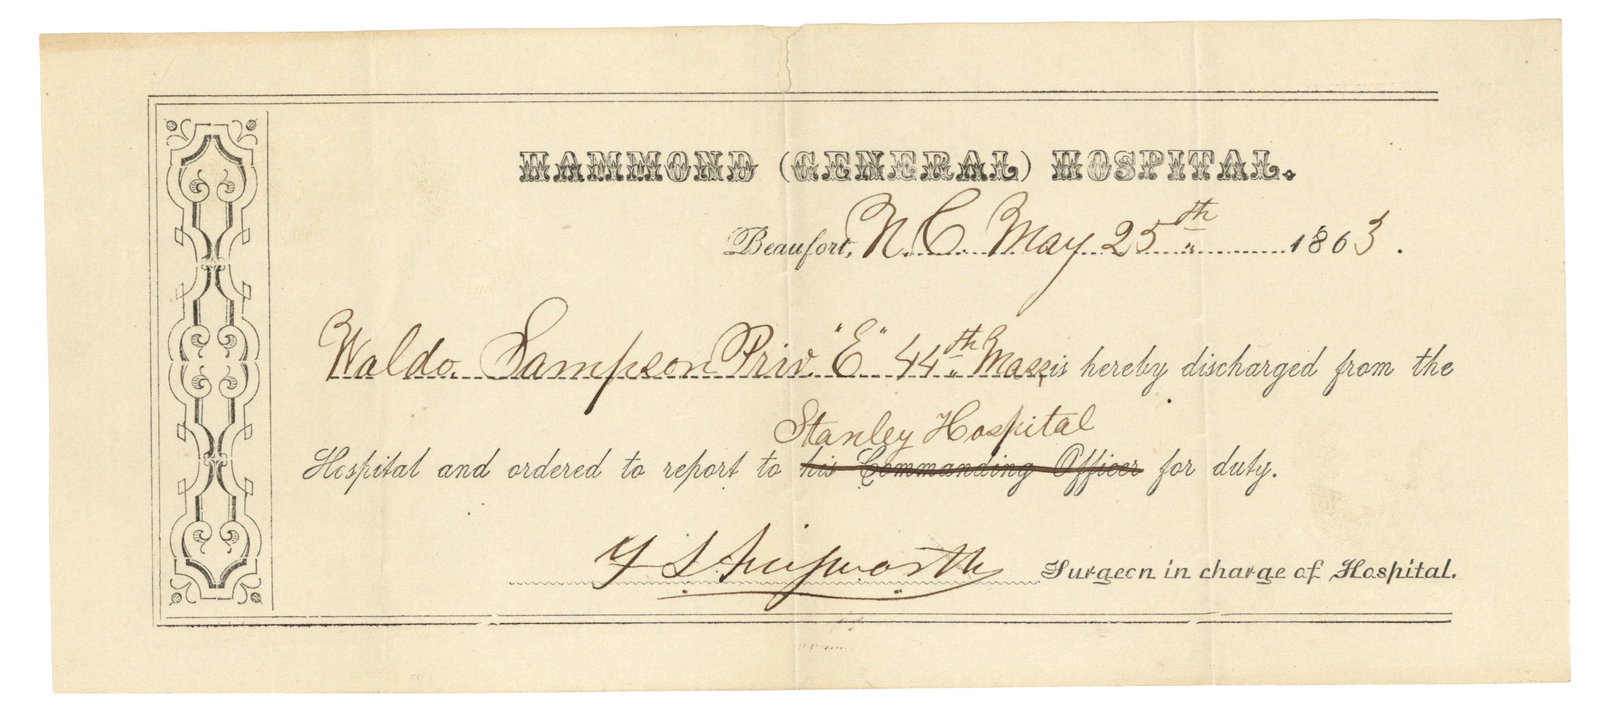 HAMMOND (GENERAL) HOSPITAL.
Beaufort, N.C. May 25th 1863.
Waldo Sampson Priv. "E" 44th Mass is hereby discharged from the
Stanley Hospital
Hospital and ordered to report to his Commanding Officer for duty.
Surgeon in charge of Hospital.